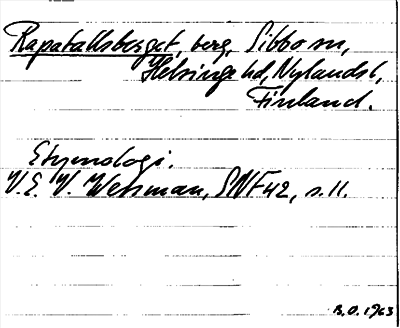 Rapatallsberget, berg, Sibbo sn,
Helsinge hd, Nylands l,
Finland.
Etymologi.
V. E. V. Wessman, SNF 42, s. 11.
B.O. 1963